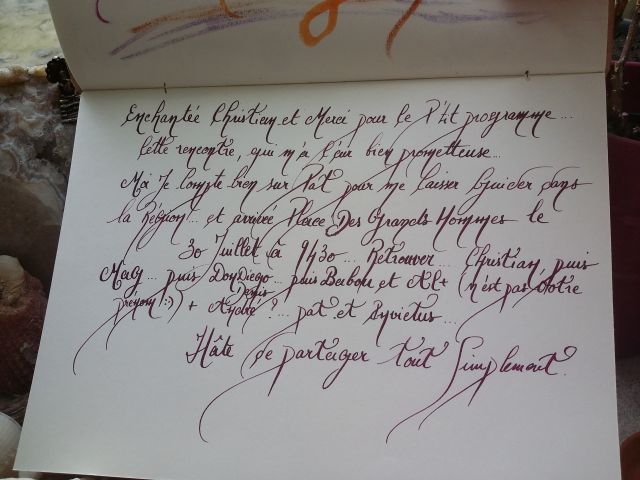 Enchantée Christian et Merci pour le P'tit programme...
Cette rencontre, qui m'a l'air bien prometteuse...
Moi Je Compte bien sur Pat pour me laisser Guider dans
la Région!.. et arrivée Place Des Grands Hommes le
30 Juillet à 9h30... Retrouver... Christian, puis
Mag... puis DonDiego... puis Barbou et Al+ (n'est pas Votre
prénom :)) + André Denis ?... pat et
Hâte de partager tout Simplement.